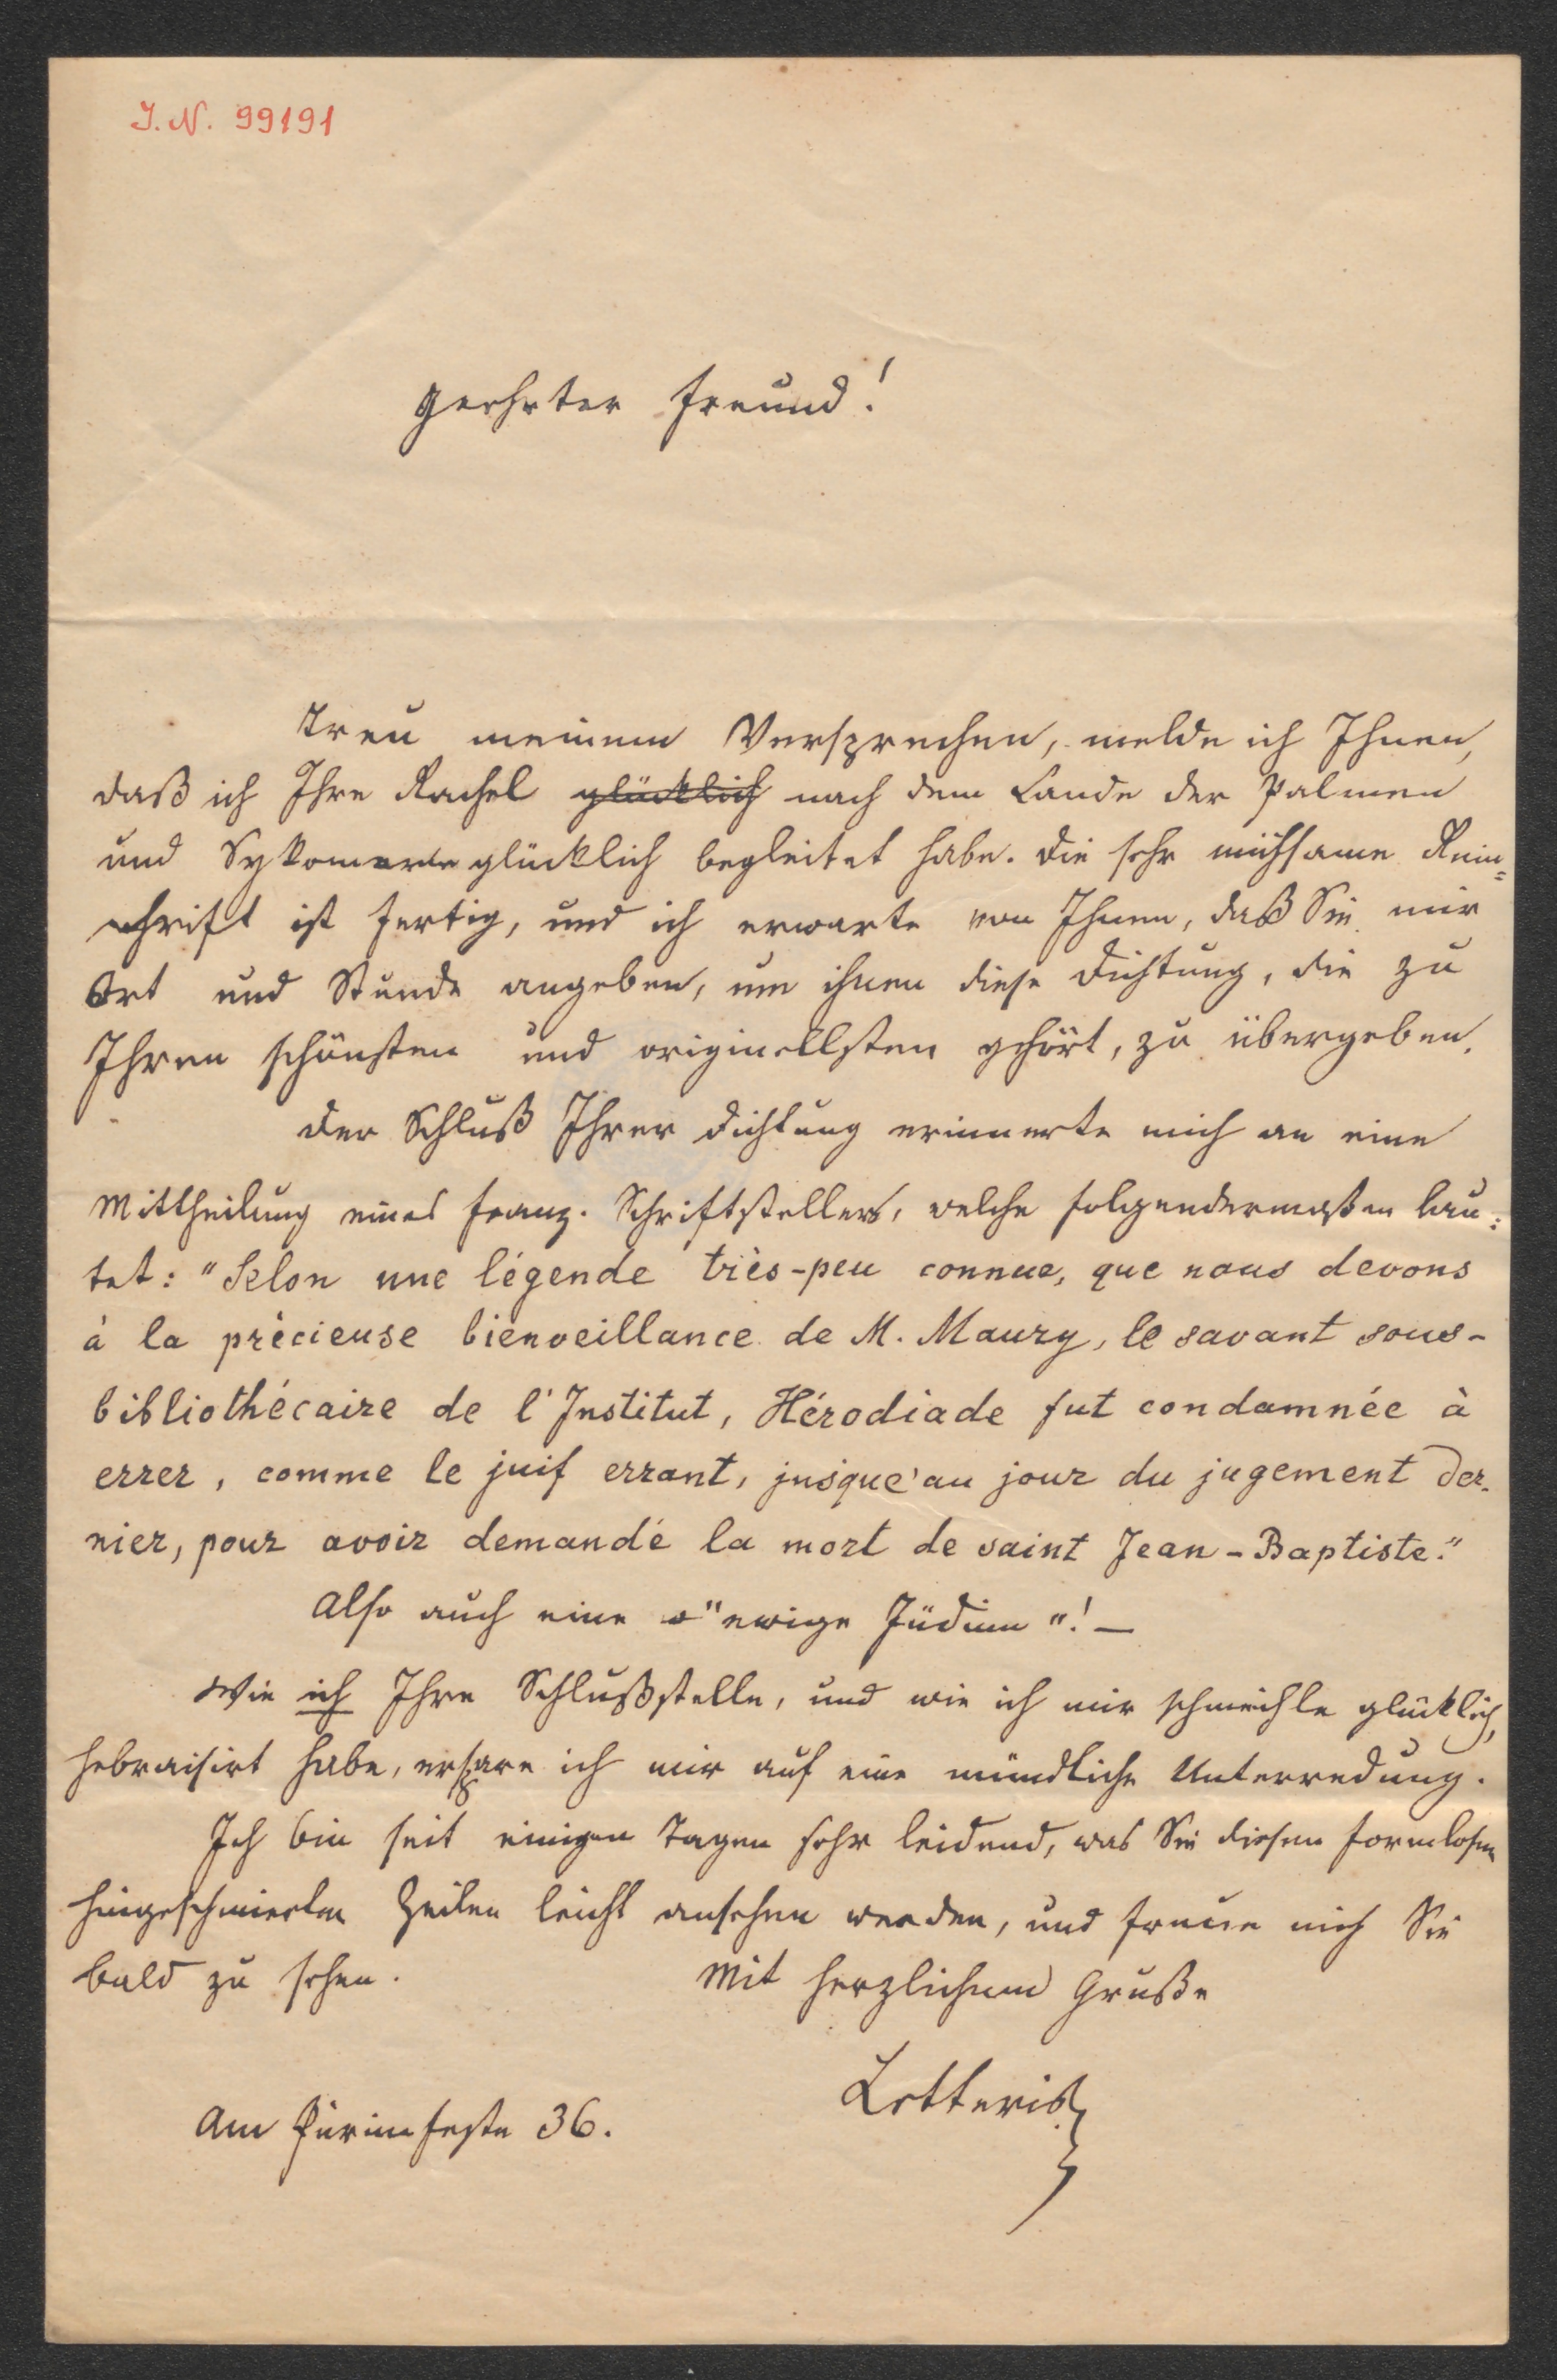 I. N. 99191
Geehrter Freund!
Treu meinem Versprechen, melde ich Ihnen,
daß ich Ihre Rachel glücklich nach dem Lande der Palmen
und Sykomoren glücklich begleitet habe. Die sehr mühsame Rein=
schrift ist fertig, und ich erwarte von Ihnen, daß Sie mir
Ort und Stunde angeben, um ihnen diese Dichtung, die zu
Ihren schönsten und originellsten gehört, zu übergeben.
Der Schluß Ihrer Dichtung erinnerte mich an eine
Mittheilung eines franz. Schriftstellers, welche folgendermaßen lau=
tet: "Selon une légende très-peu connue, que nous devons
à la précieuse bienveillance de M. Maury, le savant sous-
bibliothécaire de l'Institut, Hérodiade fut condamnée à
errer, comme le juif errant, jusque'au jour du jugement der-
nier, pour avoir demandé la mort de saint Jean-Baptiste."
Also auch eine "ewige Jüdinn"! —
Wie ich Ihre Schlußstelle, und wie ich mir schmeichle glücklich,
hebraisirt habe, erspare ich mir auf eine mündliche Unterredung.
Ich bin seit einigen Tagen sehr leidend, was Sie diesen formlosen
hingeschmierten Zeilen leicht ansehen werden, und freue mich Sie
bald zu sehen. Mit herzlichem Gruße
Letteris
Am Purimfeste 36.